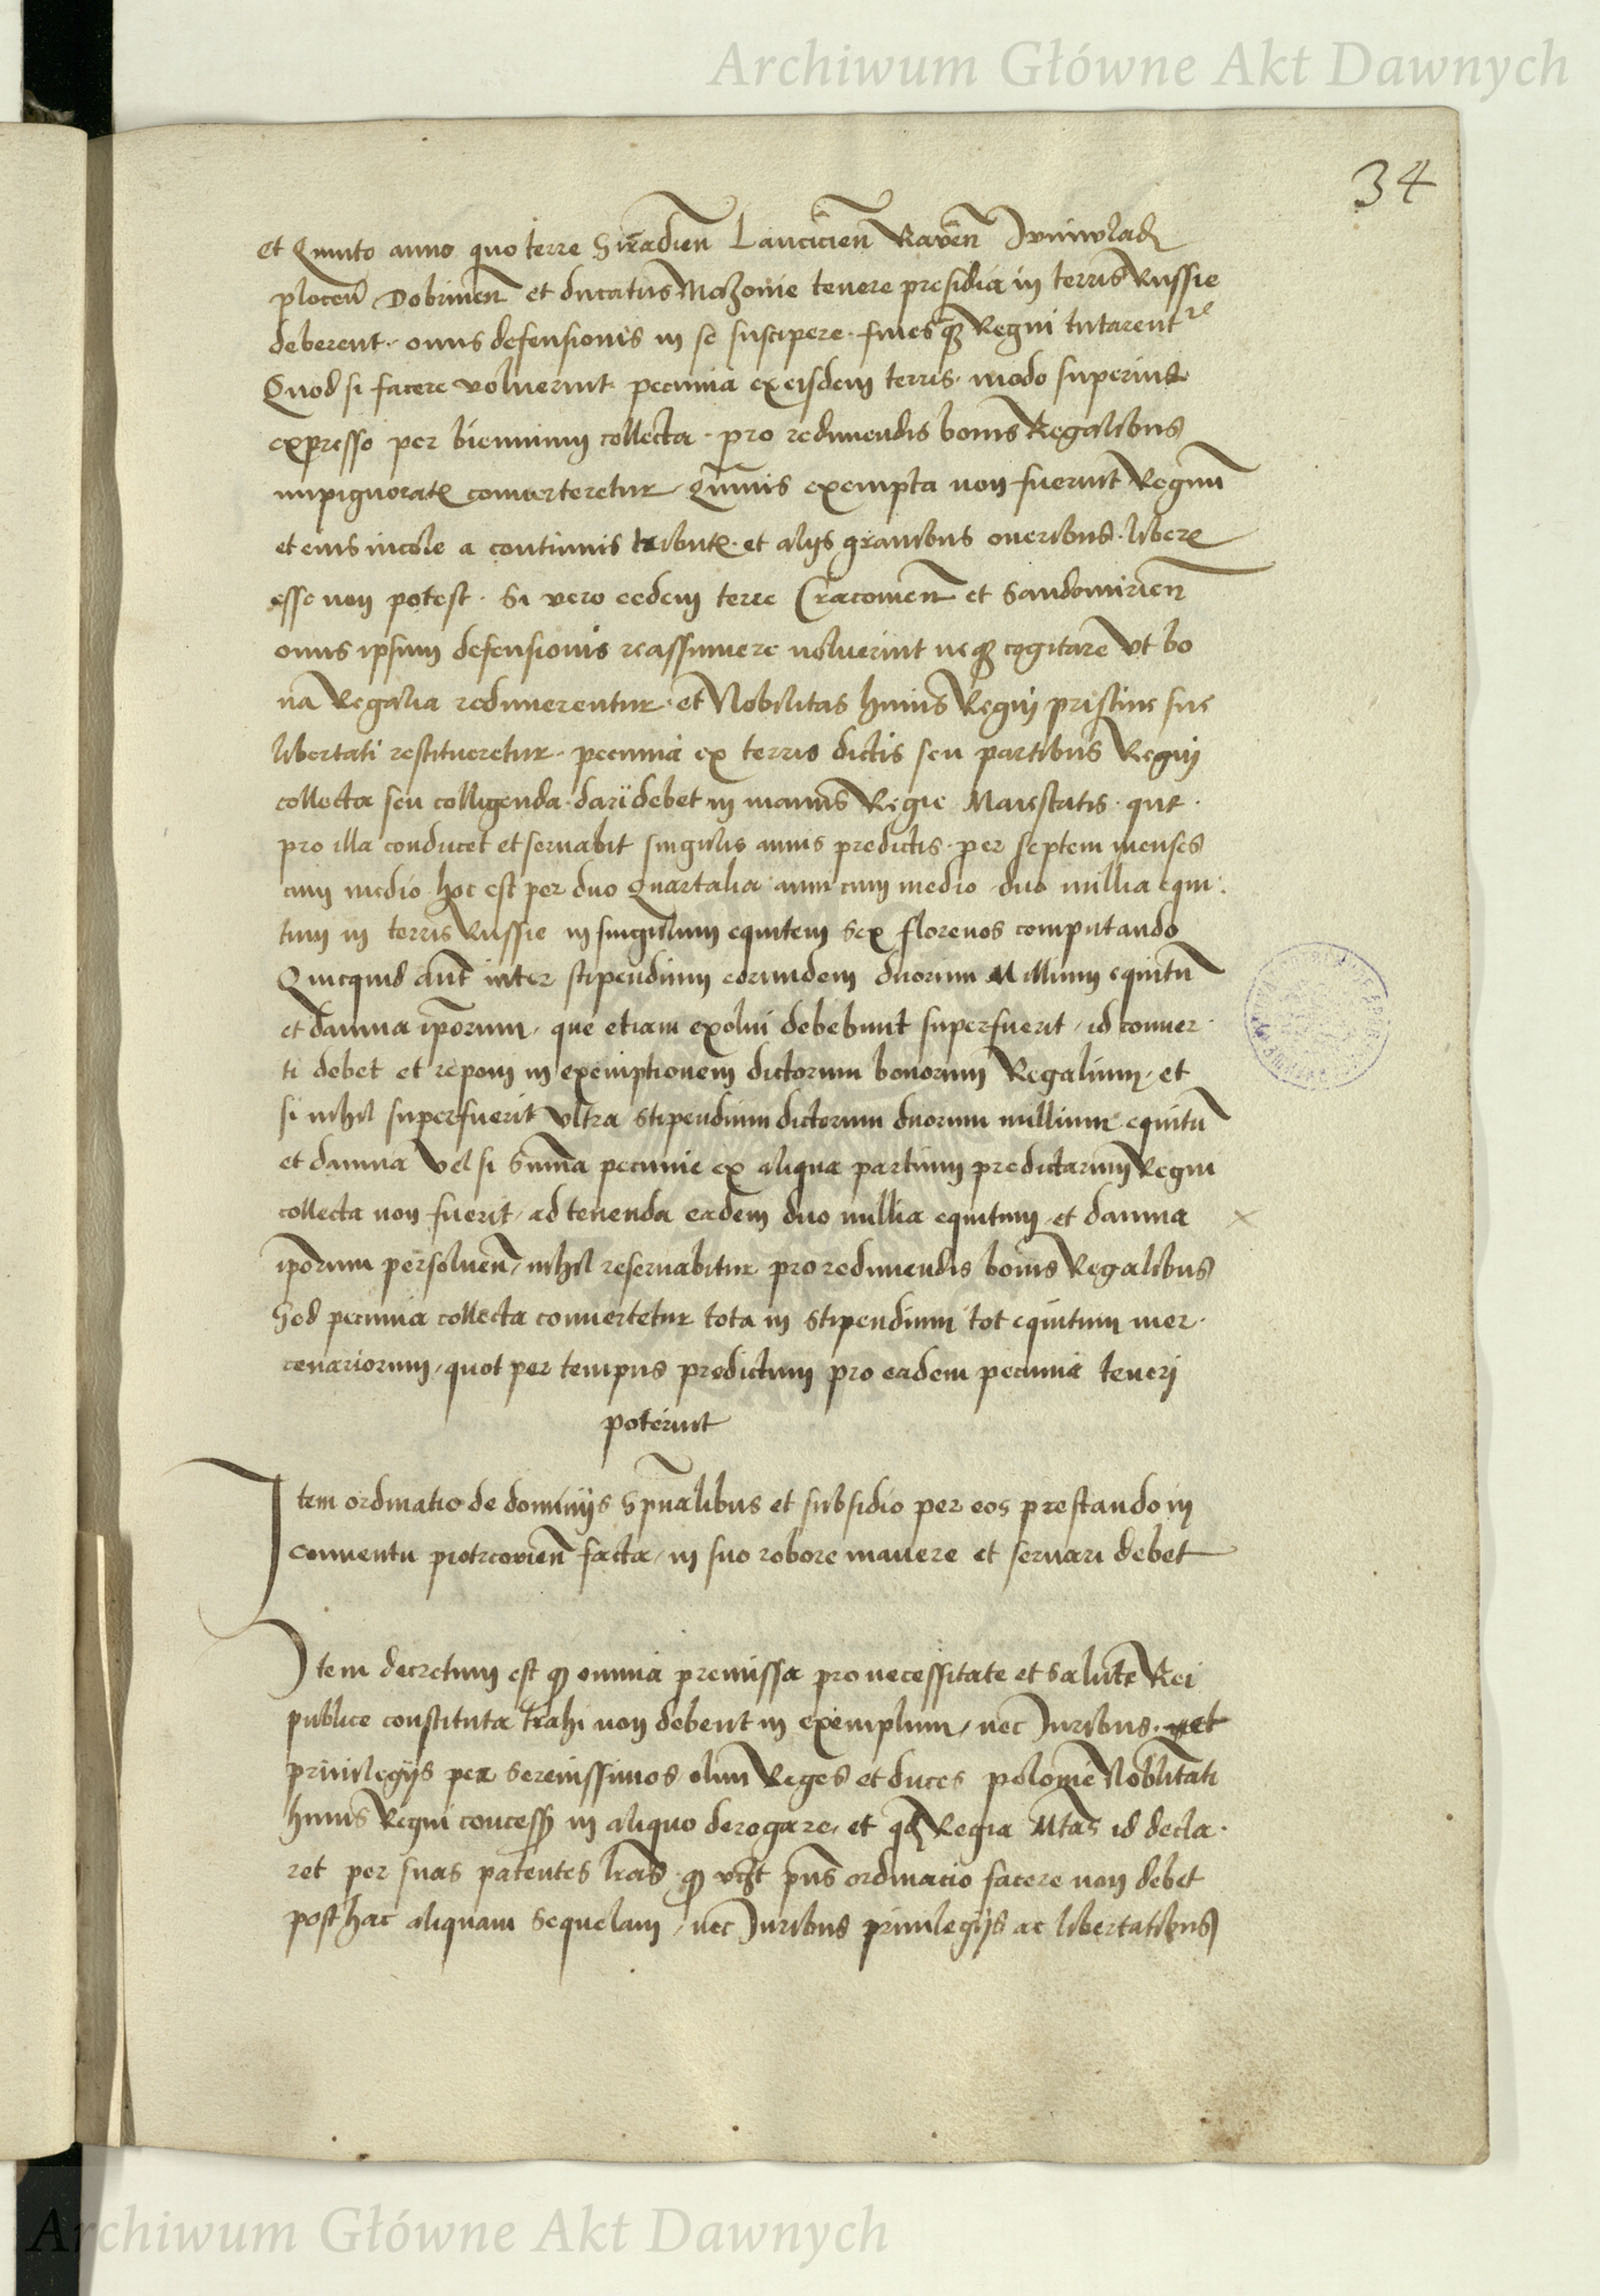 Archiwum Główne Akt Dawnych
34
et Quinto anno quo terre Siradien Lancicien Raven Juniwladi
plocen Dobrinen et ducatus Mazovie tenere presidia in terris Russie
deberent. onus defensionis in se suscipere. finesq3 Regni tutarent
Quod si facere voluerint pecunia ex eisdem terris. modo superius
expresso per biennium collecta. pro redimendis bonis Regalibus
impignorat converteretur. Quimis exempta non fuerint Regnum
et eius incole a continuis tribut. et alijs gravibus oneribus. libere
esse non potest. Si vero eedem terre Cracovien et Sandomirien
onus ipsum defensionis reassumere noluerint neq3 cogitare vt bo
na Regalia redimerentur. et Nobilitas huius Regnj pristine sue
libertati restitueretur. pecunia ex terris dictis seu partibus Regnj
collecta seu colligenda. dari debet in manus Regie Maiestatis. que.
pro illa conducet et servabit singulis annis predictis. per septem menses
cum medio. hoc est per duo quartalia anni cum medio duo millia equi:
tum in terris Russie in singulum equitem sex florenos computando
Quicquid aut inter stipendium eorundem duorum Millium equitu
et damna iporum, que etiam exolui debebunt superfuerit, id conver.
ti debet et reponi in exemptionem dictorum bonorum Regalium, et
si nihil superfuerit vltra stipendium dictorum duorum millium equitu
et damna vel si suma pecunie ex aliqua partium predictarum Regni
collecta non fuerit, ad tenenda eadem duo millia equitum, et damna
iporum persolven, nihil reservabitur pro redimendis bonis Regalibus
Sed pecunia collecta convertetur tota in stipendium tot equitum mer.
cenariorum, quot per tempus predictum pro eadem pecunia tenerj
poterint
Item ordinatio de dominijs spualibus et subsidio per eos prestando in
conventu piotrcovien facta, in suo robore manere et servari debet
Item decretum est q omnia premissa pro necessitate et salute Rei
publice constituta trahi non debent in exemplum, nec Juribus. et
privilegijs per serenissimos olim Reges et duces polonie Nobilitati
huius Regni concess in aliquo derogare, et q Regia Mtas id decla.
ret per suas patentes lras. q pns ordinacio facere non debet
post hac aliquam sequelam, nec Juribus privilegijs ac libertatibus
Archiwum Główne Akt Dawnych